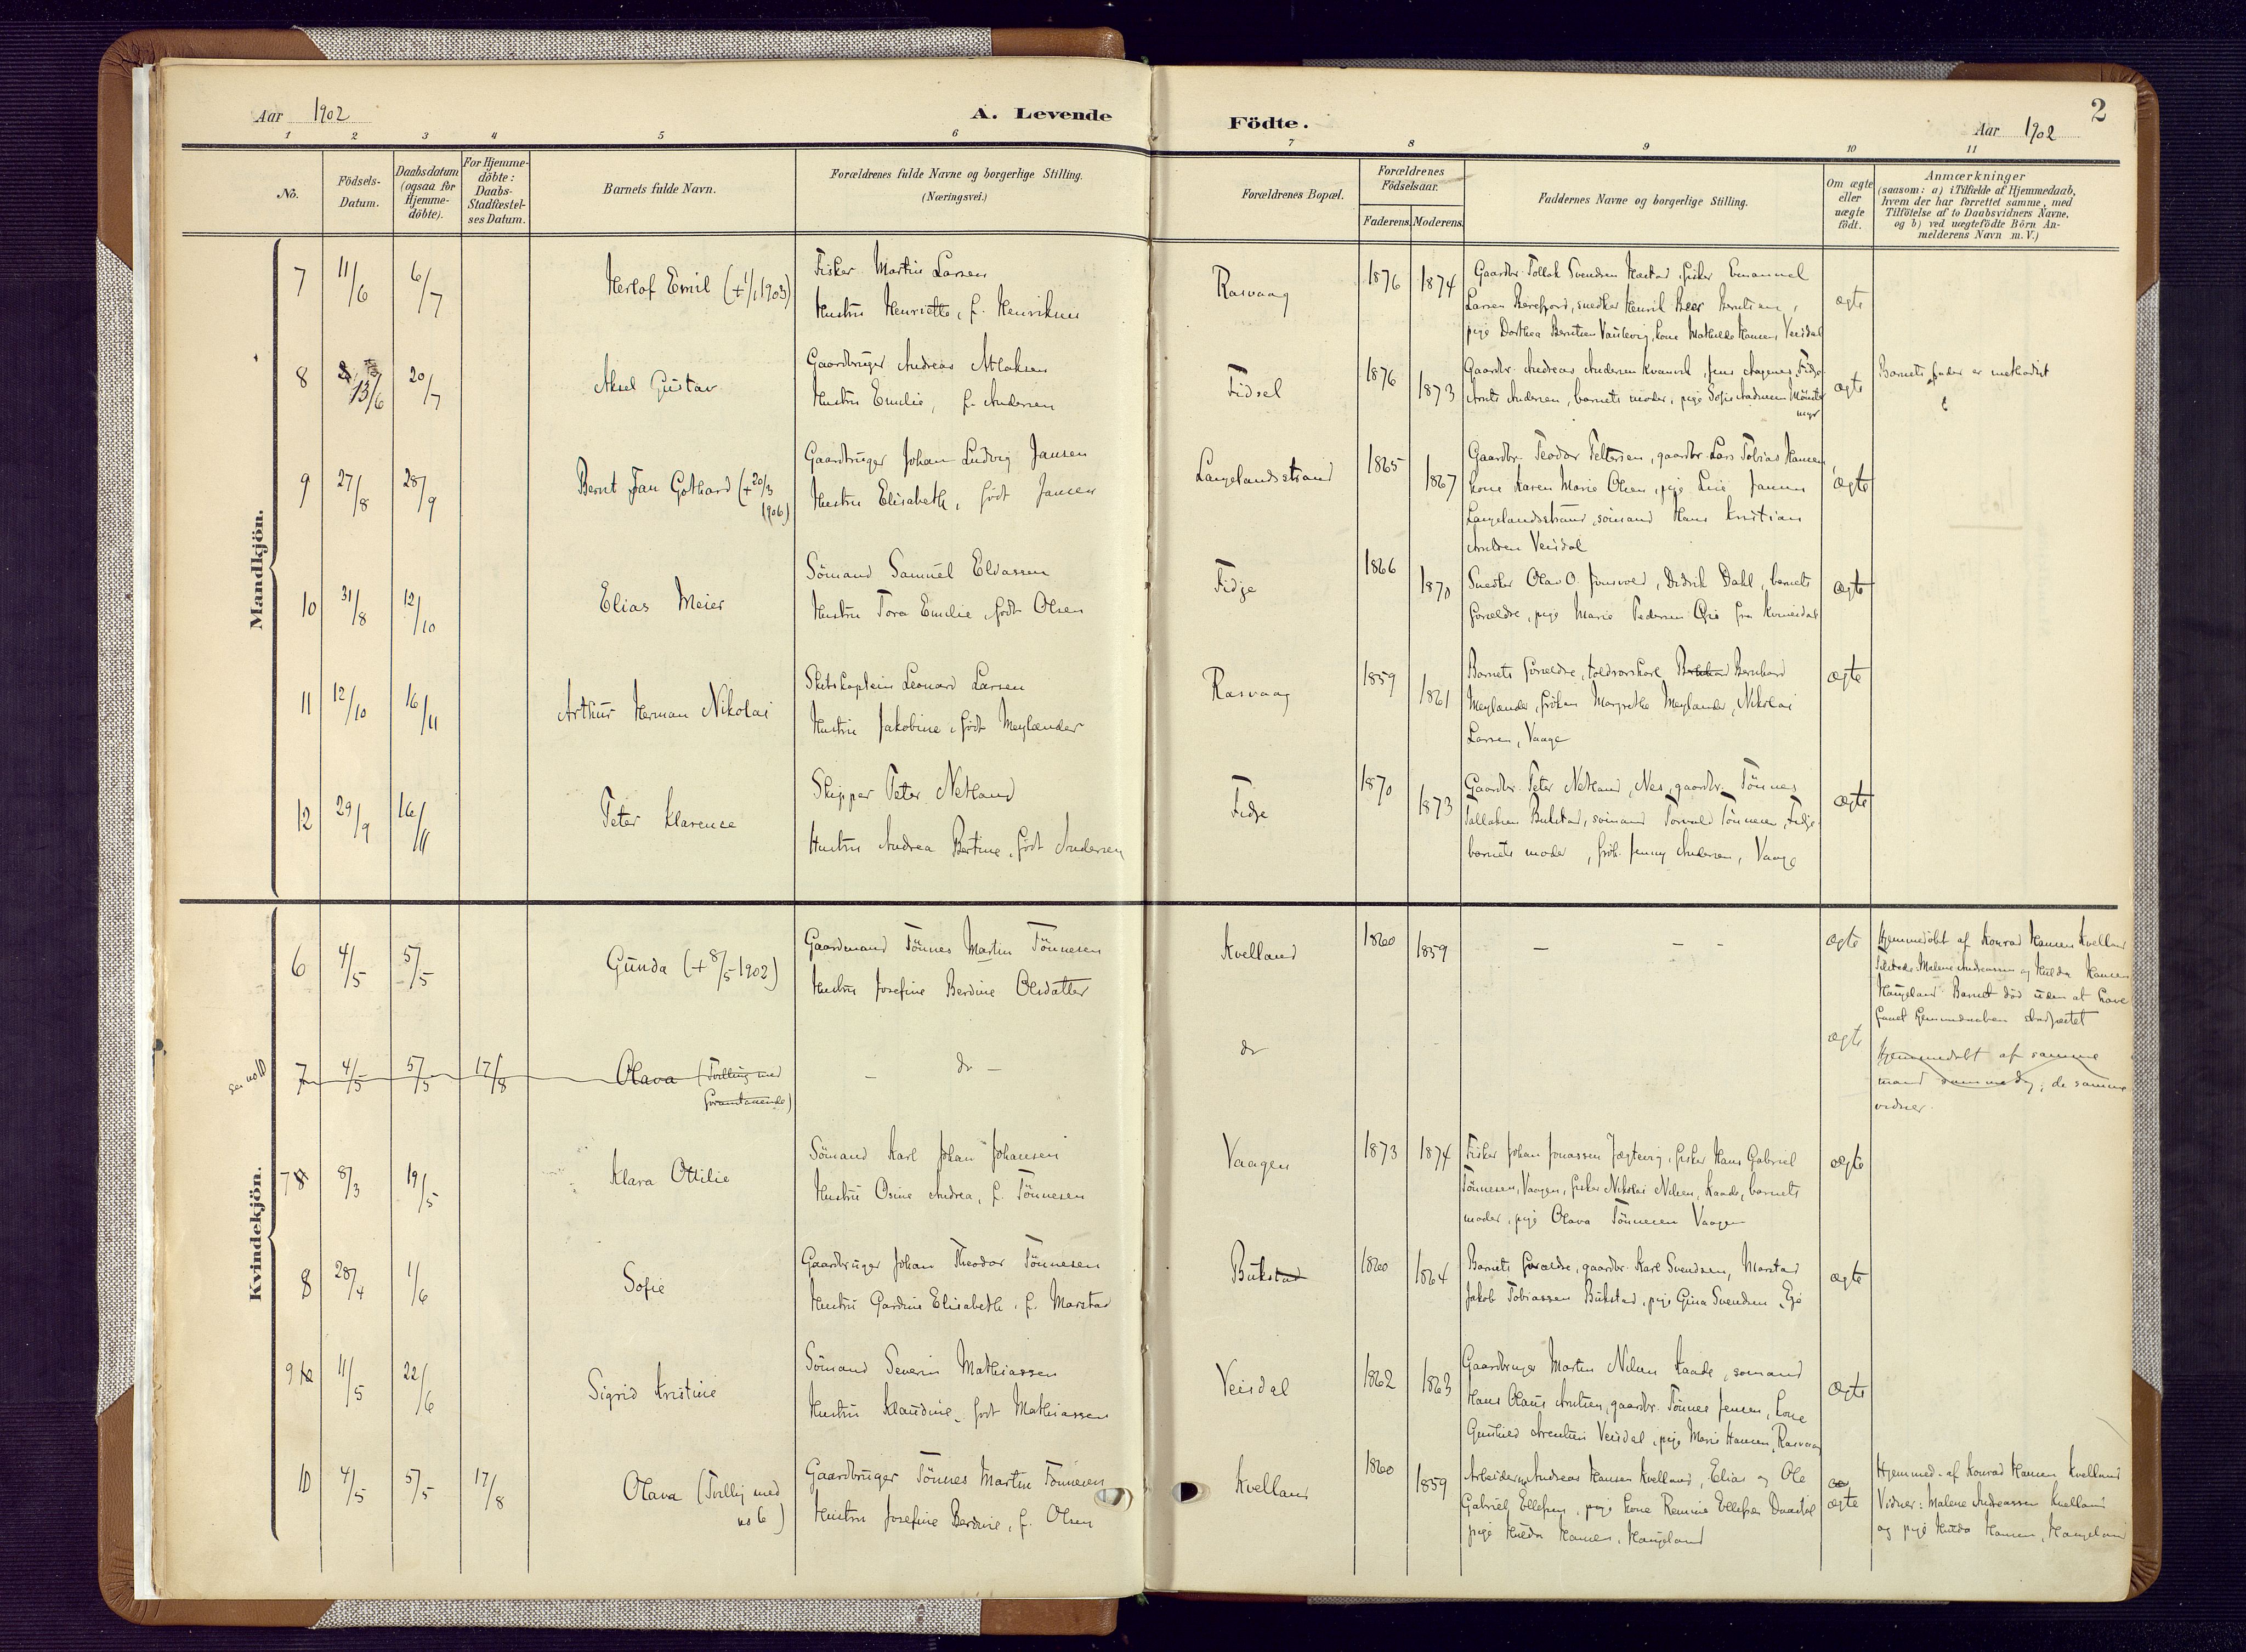 Aar 1902
A. Levende
Födte.
Aar 1902
2
1 2 3 4 5 6
7 8 9 10 11
No.
Födsels-
Datum.
Daabsdatum
(ogsaa for
Hjemme-
döbte).
For Hjemme-
döbte:
Daabs-
Stadfæstel-
ses Datum.
Barnets fulde Navn.
Forældrenes fulde Navne og borgerlige Stilling.
(Næringsvei.)
Forældrenes Bopæl.
Forældrenes
Födselsaar.
Faderens. Moderens.
Faddernes Navne og borgerlige Stilling.
Om ægte
eller
uægte
födt.
Anmærkninger
(saasom: a) i Tilfælde af Hjemmedaab,
hvem der har forrettet samme, med
Tilföielse af to Daabsvidners Navne,
og b) ved uægtefödte Börn An-
melderens Navn m. V.)
Mandkjön.
7 11/6 6/7 Herlof Emil (+ 1/1 1903)
Fisker Martin Larsen
Hustru Henriette, f. Henriksen
Rasvaag 1876 1874
Gaardbr. Tollak Svendsen, fisker Emanuel
Larsen, snedker Henrik Berntsen,
pige Dorthea Berntsen, kone Mathilde Hansen, Veisdal
ægte
8 13/6 20/7 Aksel Gustav
Gaardbruger Andreas Atlaksen
Hustru Emilie, f. Andersen
Fidsel 1876 1873
Gaardbr. Andreas Andersen Kvanvik, Jens
Andersen, barnets moder, pige Sofie
ægte
Barnets fader er methodist
9 27/8 28/9 Bernt Jan Gothard (+ 20/3
1906)
Gaardbruger Johan Ludvig Jansen
Hustru Elisabeth, födt Jansen
Langelandsstrand 1865 1867
Gaardbr. Teodor Feltersen, gaardbr. Lars Tobias Hansen,
kone Karen Marie Olsen, pige Jansen
Langelandsstrand, sömand Hans Kristian
Arntsen Veisdal
ægte
10 31/8 12/10 Elias Meier
Sömand Samuel Eliassen
Hustru Tora Emilie, födt Olsen
Fidje 1866 1870
Snedker Olav O. Jonsvold, Didrik Dahl, barnets
forældre, pige Marie Pedersen fra Kvinesdal
ægte
11 12/10 16/11 Arthur Herman Nikolai
Skibskaptein Leonard Larsen
Hustru Jakobine, födt Meylænder
Rasvaag 1859 1861
Barnets forældre, toldrorskarl Bernhard
Meylænder, fröken Margrethe Meylænder, Nikolai
Larsen, Vaage
ægte
12 29/9 16/11 Peter Klarence
Skipper Peter Netland
Hustru Andrea Bertine, födt Andersen
Fidje 1870 1873
Gaardbr. Peter Netland, Nes, gaardbr. Tönnes
Tallaksen Bukstad, sömand Torvald Tönnesen, Fidje
barnets moder, frök. Jenny Andersen, Vaage
ægte
Kvindekjön.
6 4/5 5/5 Gunda (+ 8/5 1902)
Gaardmand Tönnes Martin Tönnesen
Hustru Josefine Berdine Olsdatter
Kvelland 1860 1859
— — —
ægte
Hjemmedöbt af Konrad Hansen Kvelland
Malene Andreassen og Hulda Hansen
Haugeland. Barnet död uden at have
faaet hjemmedaaben stadfæstet
se no 10
7 4/5 5/5 17/8 Olava (Tvilling med
foranstaaende)
— do —
do
ægte
Hjemmedöbt af samme
mand samme dag; de samme
vidner.
7 8 8/3 19/5 Klara Ottilie
Sömand Karl Johan Johansen
Hustru Osine Andrea, f. Tönnesen
Vaagen 1873 1874
Fisker Johan Jonassen Jegtevig, fisker Hans Gabriel
Tönnesen, Vaagen, fisker Nikolai Nilsen, Kaade, barnets
moder, pige Olava Tönnesen Vaagen
ægte
8 28/4 1/6 Sofie
Gaardbruger Johan Theodor Tönnesen
Hustru Gardine Elisabeth, f. Marstad
Bukstad 1860 1864
Barnets forældre, gaardbr. Karl Svendsen, Marstad
Jakob Tobiassen Bukstad, pige Gina Svendsen Eje
ægte
9 10 11/5 22/6 Sigrid Kristine
Sömand Severin Mathiassen
Hustru Klaudine, födt Mathiassen
Veisdal 1862 1863
Gaardbruger Morten Nilsen Kaade, sömand
Hans Olaus Arntsen, gaardbr. Tönnes Jensen, kone
Gunhild Arentsen Veisdal, pige Marie Hansen, Rasvaag
ægte
10 4/5 5/5 17/8 Olava (Tvilling med
no 6)
Gaardbruger Tönnes Martin Tönnesen
Hustru Josefine Berdine, f. Olsen
Kvelland 1860 1859
Arbeiderne Andreas Hansen Kvelland, Elias og Ole
Gabriel Ellefsen, kone Ellefsen
pige Hulda Hansen, Haugeland
ægte
Hjemmed. af Konrad Hansen Kvelland
Vidner: Malene Andreassen Kvelland
og pige Hulda Hansen, Haugeland